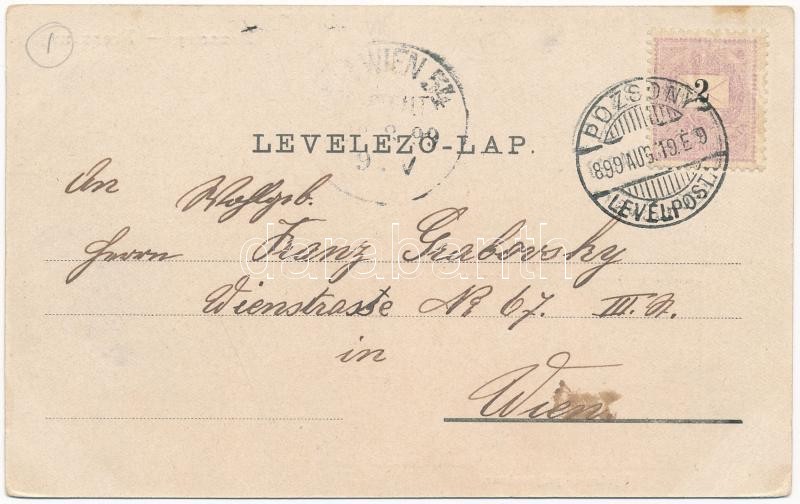 1
WIEN 54
99
9. V
2
POZSONY
899 AUG. 19. É 9
LEVÉLPOSTA
LEVELEZŐ-LAP.
An Wohlgeb.
Herrn Franz Grabovsky
Wienstrasse No 67. III. St.
in
Wien
darabanth